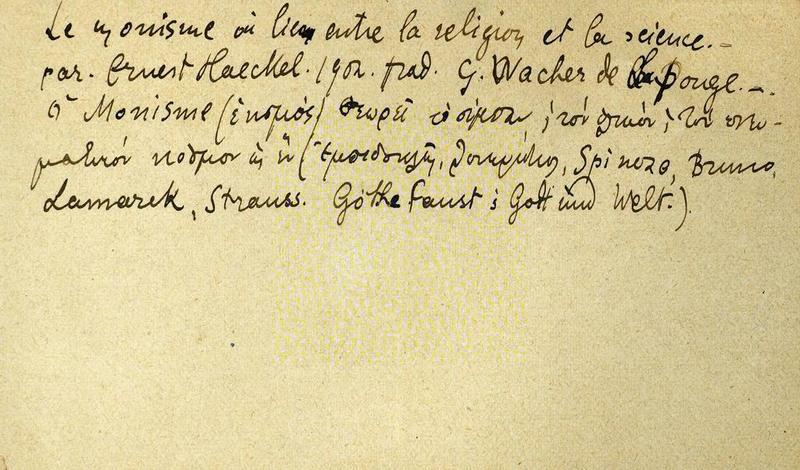 Le monisme ou lien entre la religion et la science.-
par. Ernest Haeckel. 1902. trad. G. Wacher de Lapouge.-.
ὁ Monisme (ἑνισμός) θεωρεῖ τὸ σύμπαν, τὸν ὑλικόν, τὸν πνευ-
ματικόν κόσμον ὡς ἕν (Ἐμπεδοκλῆς, Λουκρήτιος, Spinoza, Bruno,
Lamarck, Strauss. Göthe Faust: Gott und Welt.)